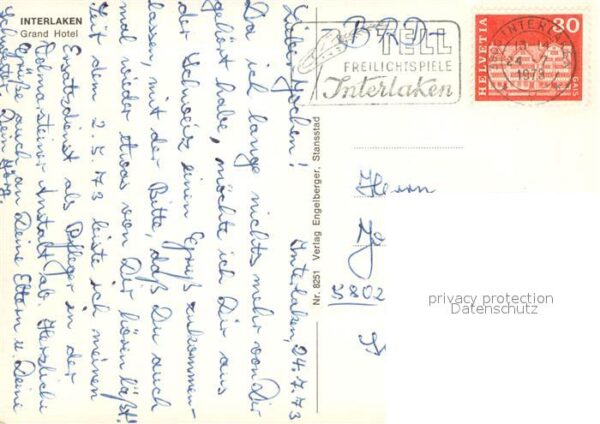 INTERLAKEN
Grand Hotel
Interlaken, 24.7.73
Lieber Jochen!
Da ich lange nichts mehr von Dir
gehört habe, möchte ich Dir aus
der Schweiz einen Gruß zukommen
lassen, mit der Bitte, daß Du auch
mal wieder etwas von Dir hören läßt!
Seit dem 2.5.73 leiste ich meinen
Ersatzdienst als Pfleger in der
Anstalt ab. Herzliche
Grüße auch an Deine Eltern u. Deine
Dein
Nr. 8251 Verlag Engelberger, Stansstad
BRD
TELL
FREILICHTSPIELE
Interlaken
INTERLAKEN
24
1973
HELVETIA
30
Herrn
5802
privacy protection
Datenschutz